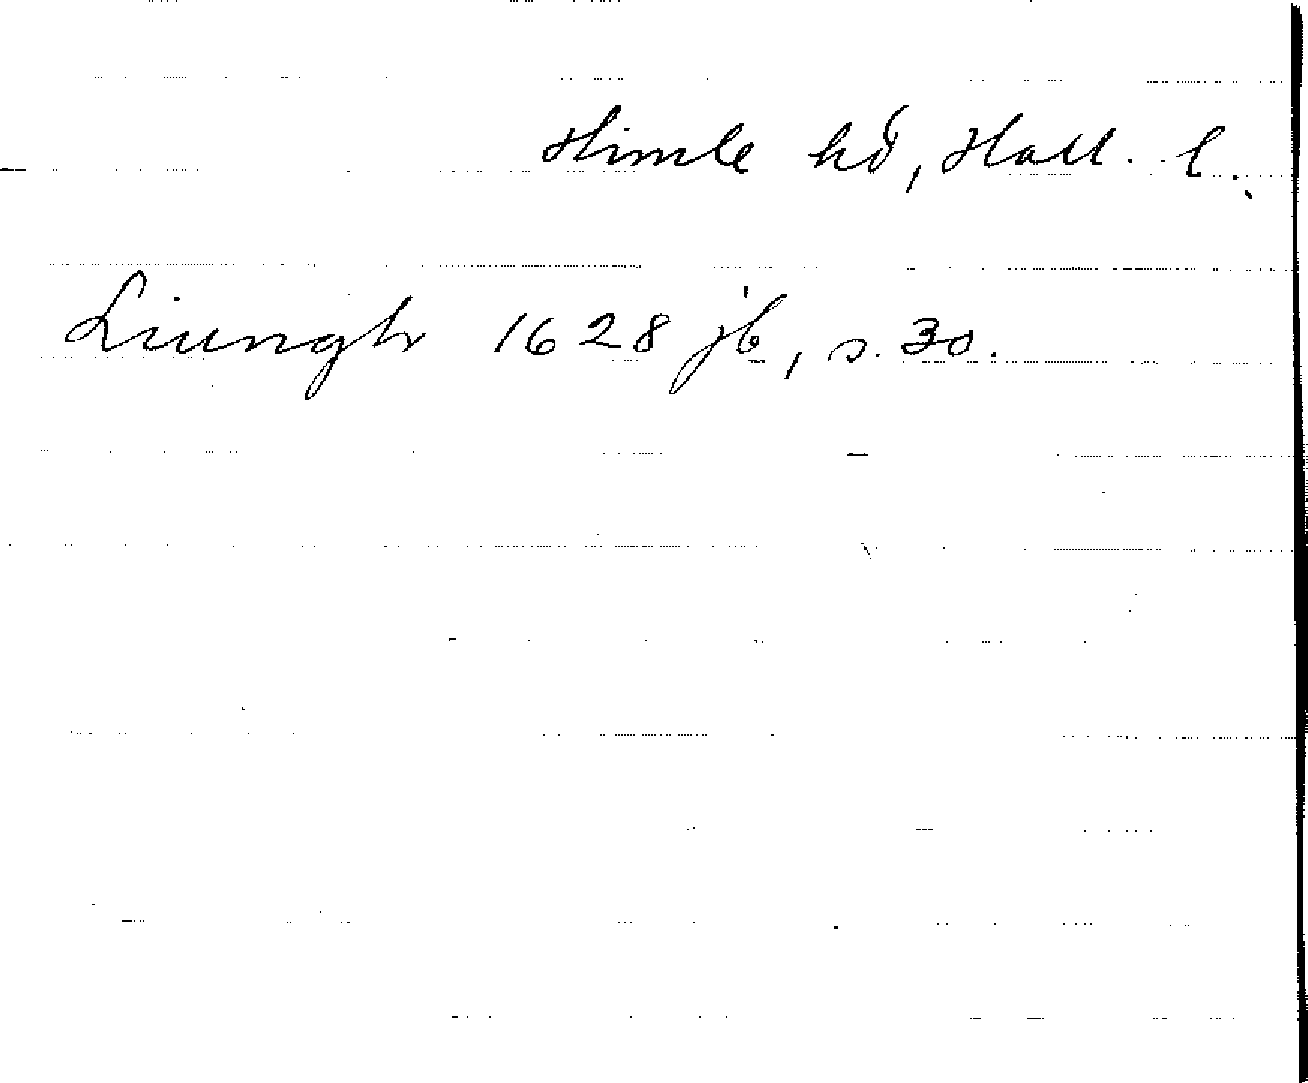 Himle hd, Hall. l.
Liungh 1628 jb, s. 30.